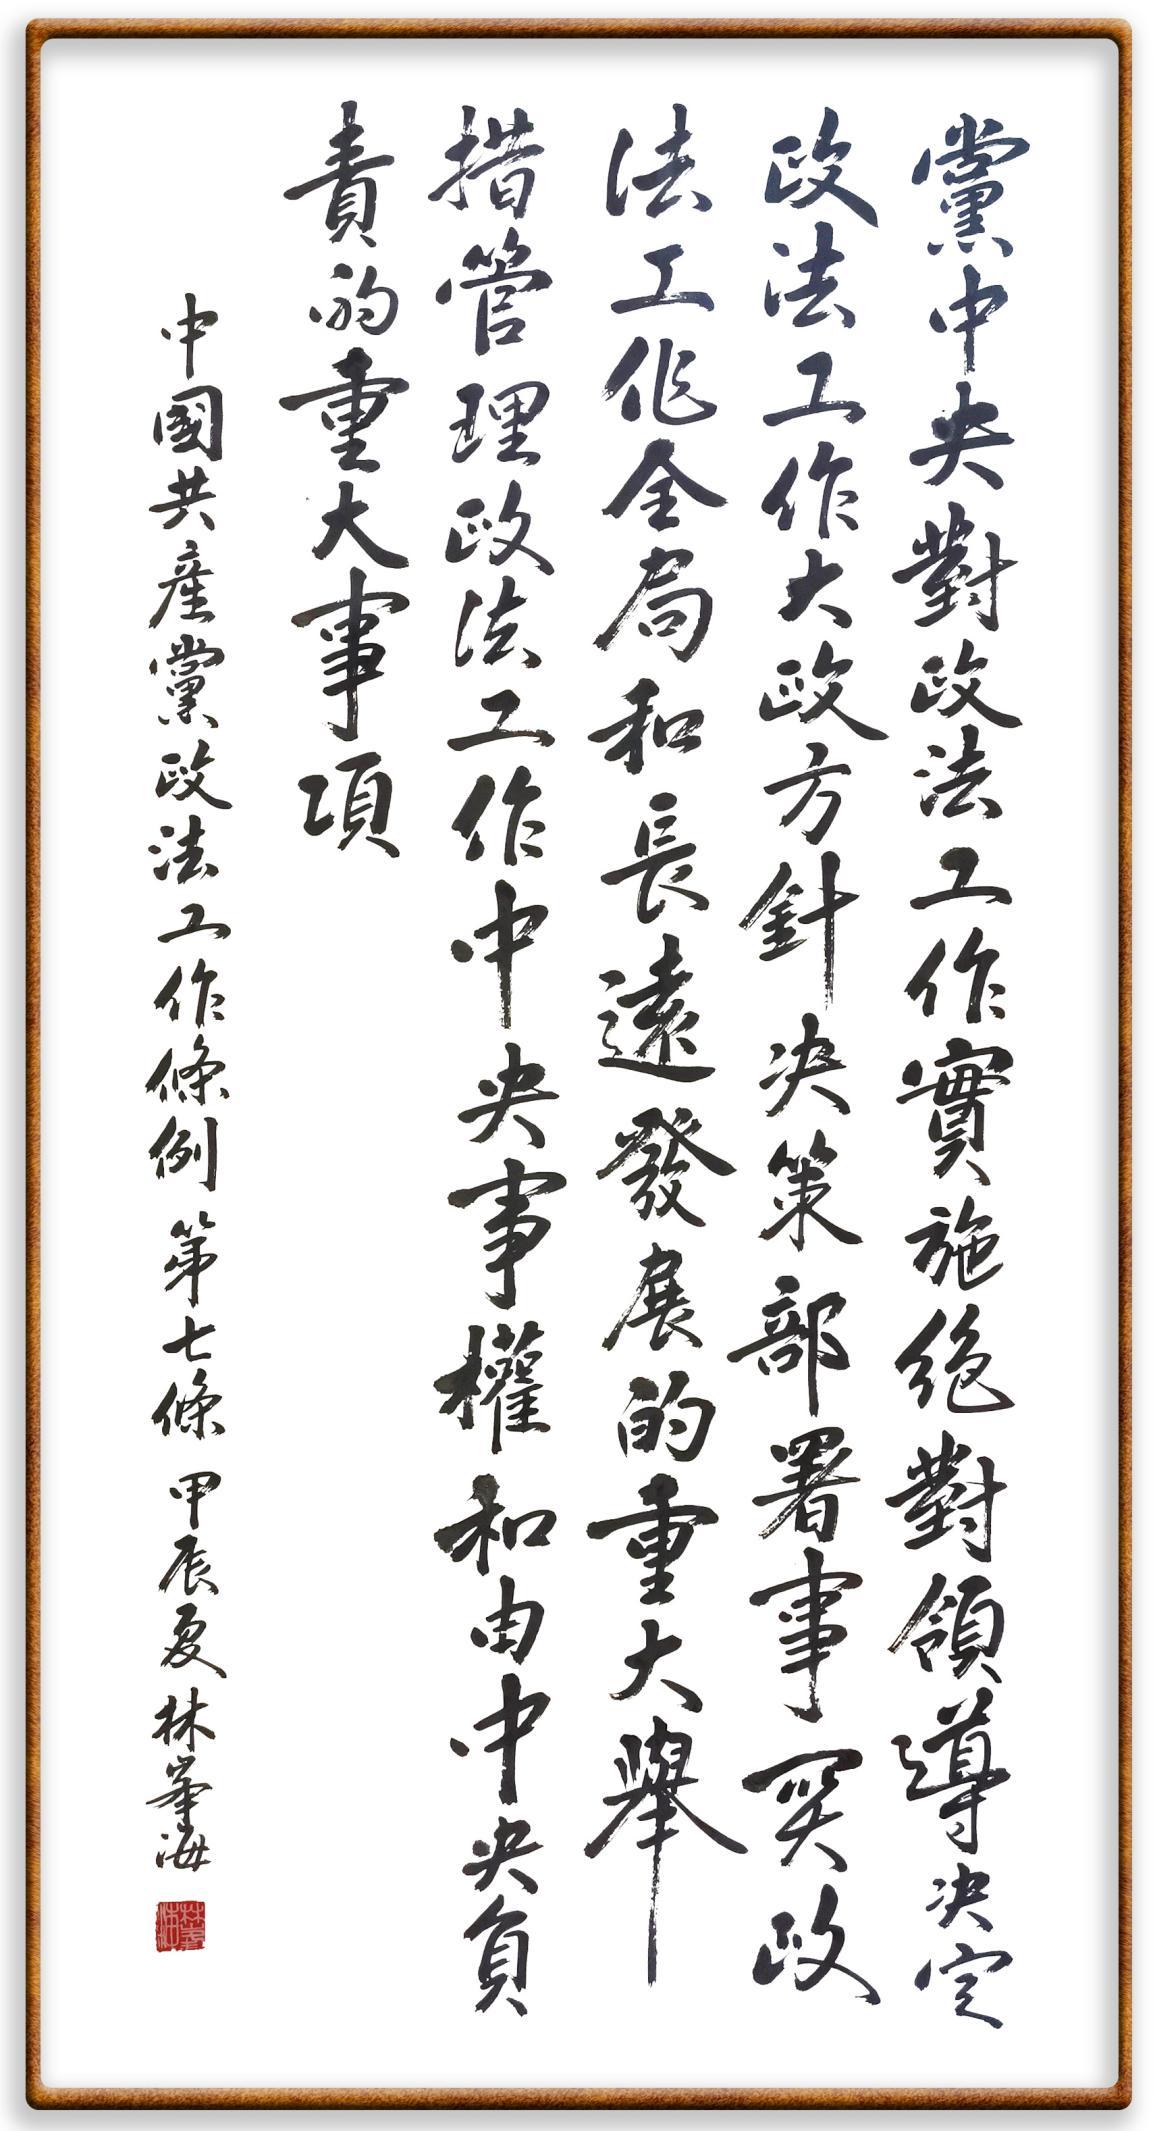 黨中央對政法工作實施絶對領導决定
政法工作大政方針决策部署事関政
法工作全局和長遠發展的重大舉
措管理政法工作中央事權和由中央負
責的重大事項
中國共産黨政法工作條例 第七條 甲辰夏 林峯海
林峯海